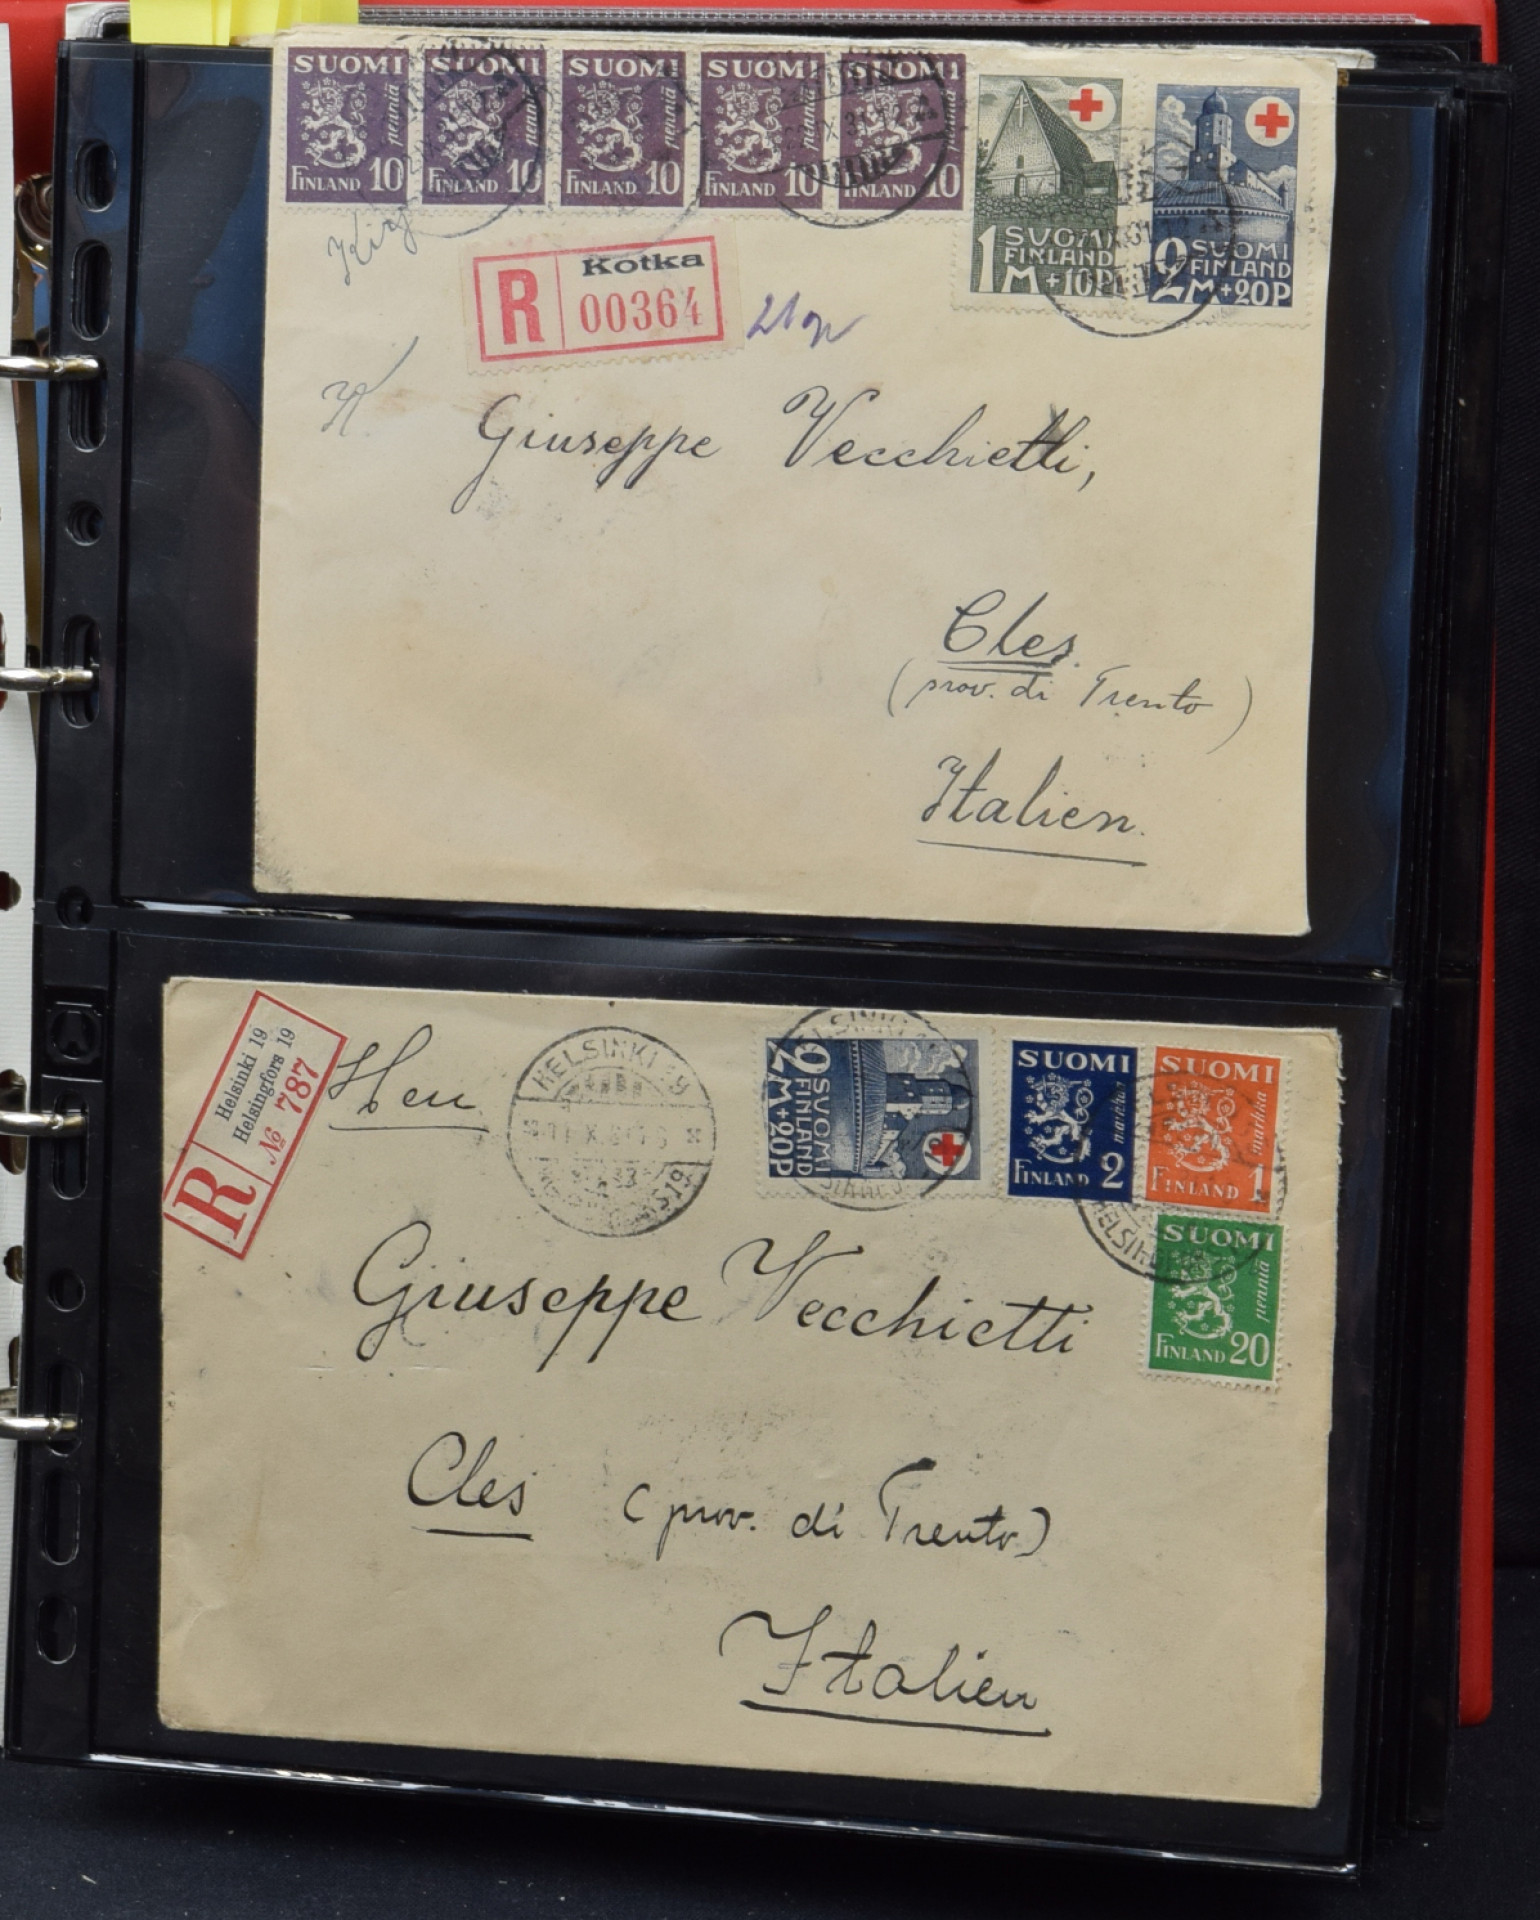 SUOMI SUOMI SUOMI SUOMI SUOMI
penniä penniä penniä penniä penniä
FINLAND 10 FINLAND 10 FINLAND 10 FINLAND 10 FINLAND 10
1 SUOMI
FINLAND
M+10P
2 SUOMI
FINLAND
M+20P
R
Kotka
00364
Giuseppe Vecchietti,
Cles.
(prov. di Trento)
Italien.
R
Helsinki 19
Helsingfors 19
№ 787
HELSINKI 19
2 SUOMI
FINLAND
M+20P
SUOMI
markkaa
FINLAND 2
SUOMI
markka
FINLAND 1
SUOMI
penniä
FINLAND 20
Giuseppe Vecchietti
Cles (prov. di Trento)
Italien